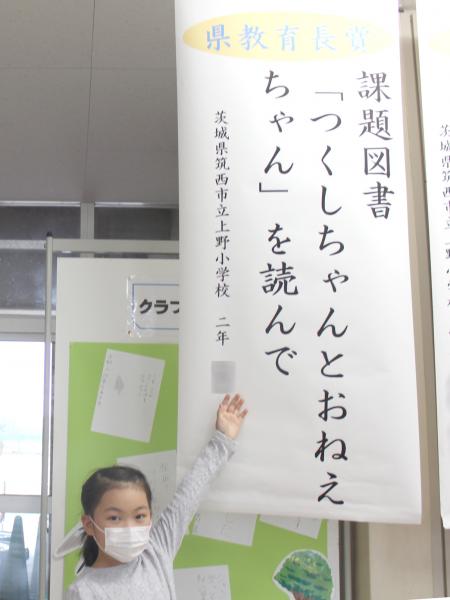 県教育長賞
課題図書
「つくしちゃんとおねえ
ちゃん」を読んで
茨城県筑西市立上野小学校 二年
茨城県筑西市立
クラブ